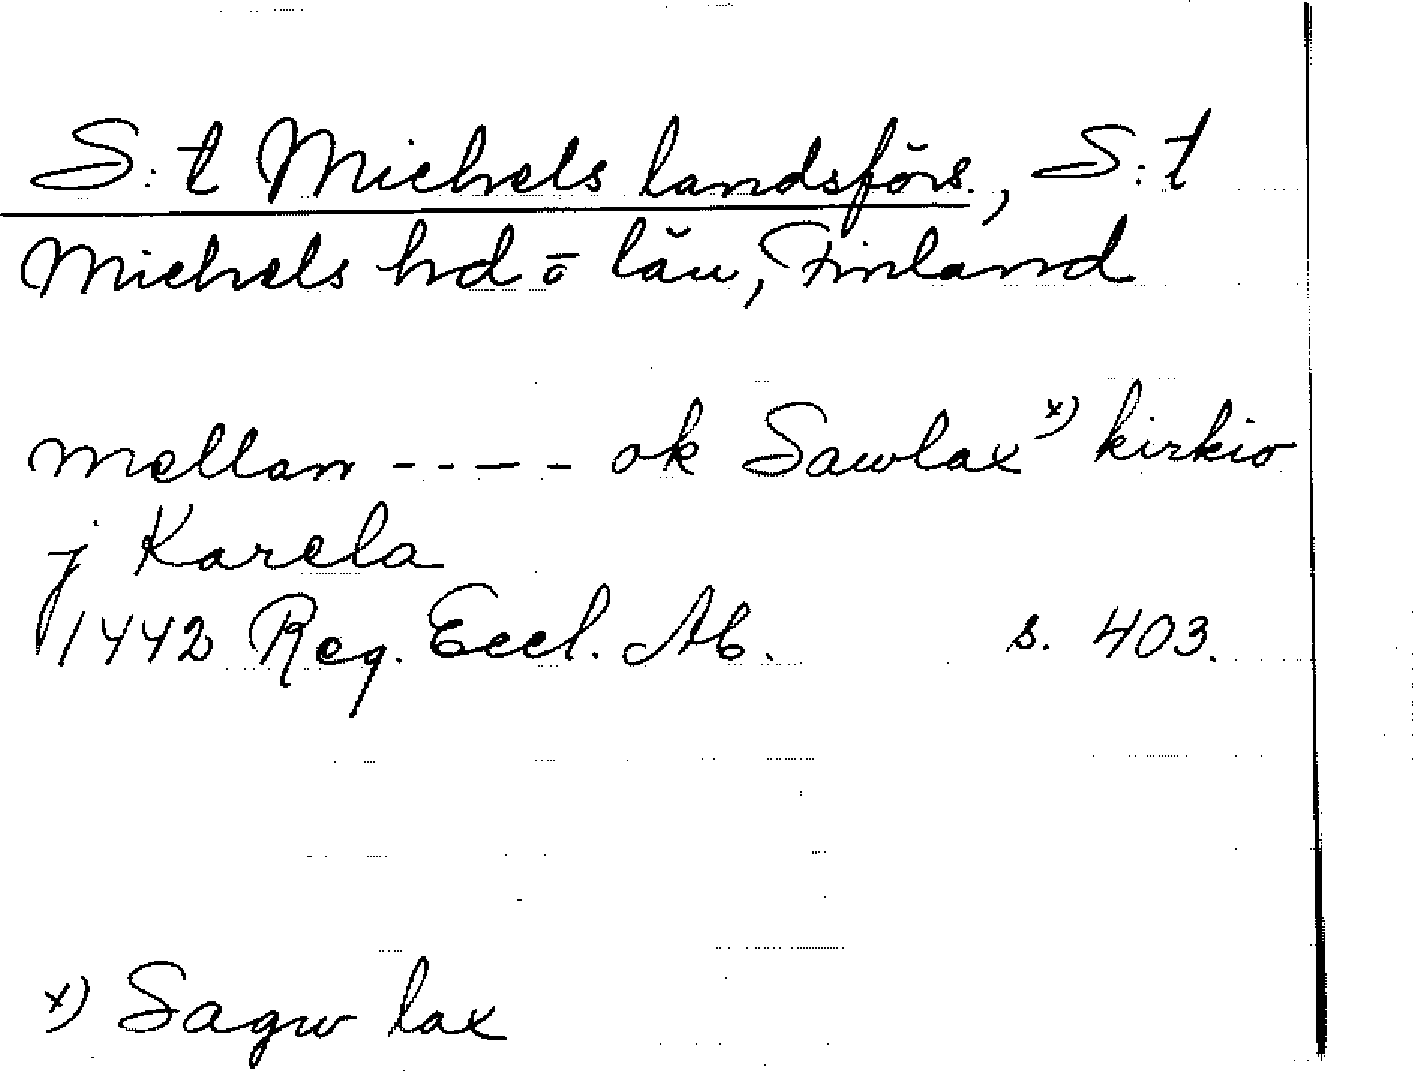 S:t Michels landsförs., S:t
Michels hd o län, Finland
mellan ----- ok Sawlax x) kirkio
j Karela
1442 Reg. Eccl. Ab. s. 403.
x) Sagw lax